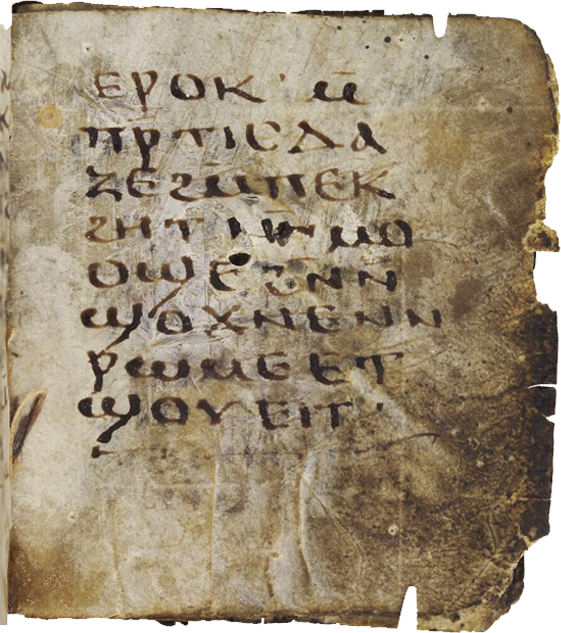 ⲉⲣⲟⲕ · ⲙ̄
ⲡⲣ̄ⲧⲓⲥⲇⲁ
ⲍⲉϩⲙ̄ⲡⲉⲕ
ϩⲏⲧ ⲙⲟ
ⲟϣⲉϩⲛ̄ⲛ
ϣⲟϫⲛⲉⲛⲛ
ⲣⲱⲙⲉⲉⲧ
ϣⲟⲩⲉⲓⲧ ·